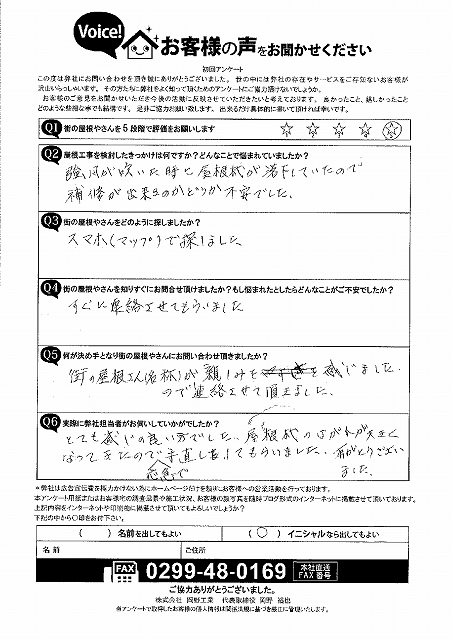 Voice!
お客様の声をお聞かせください
初回アンケート
この度は弊社にお問い合わせを頂き誠にありがとうございました。世の中には弊社の存在やサービスをご存知ないお客様が
沢山いらっしゃいます。その方たちに弊社をよく知って頂くためのアンケートにご協力頂けないでしょうか。
お客様のご意見をお聞かせいただき今後の活動に反映させていただきたいと考えております。良かったこと、嬉しかったこと
どのような些細な事でも結構です。是非ご協力お願い致します。出来るだけ具体的に書いて頂ければ幸いです。
Q1 街の屋根やさんを5段階で評価をお願いします
1 2 3 4 5
Q2 屋根工事を検討したきっかけは何ですか?どんなことで悩まれていましたか?
強風が吹いた時に屋根材が落下していたので
補修が出来るのかどうか不安でした。
Q3 街の屋根やさんをどのように探しましたか?
スマホ(マップ)で探しました
Q4 街の屋根やさんを知りすぐにお問合せ頂けましたか?もし悩まれたとしたらどんなことがご不安でしたか?
すぐに連絡させてもらいました
Q5 何が決め手となり街の屋根やさんにお問い合わせ頂きましたか?
街の屋根さん(名称)が親しみを感じました。
ので連絡させて頂きました。
Q6 実際に弊社担当者がお伺いしていかがでしたか?
とても感じの良い方でした、屋根材のはがれが大きく
なってきたので手直しをしてもらいました。ありがとうござい
応急で
ました。
*弊社は広告宣伝費を極力かけない為にホームページだけを頼りにお客様への営業活動を行っております。
本アンケート用紙またはお客様宅の調査風景や施工状況、お客様の顔写真を随時ブログ形式のインターネットに掲載させて頂いております。
上記内容をインターネットや印刷物に掲載させて頂いてもよろしいでしょうか?
下記の中から○印をお付下さい。
( )名前を出してもよい
(○)イニシャルなら出してもよい
名前
ご住所
FAX 0299-48-0169 本社直通
FAX番号
ご協力ありがとうございました。
株式会社 岡野工業 代表取締役 岡野 裕樹
当アンケートで取得したお客様の個人情報は関係法規に基づき厳正に管理いたします。